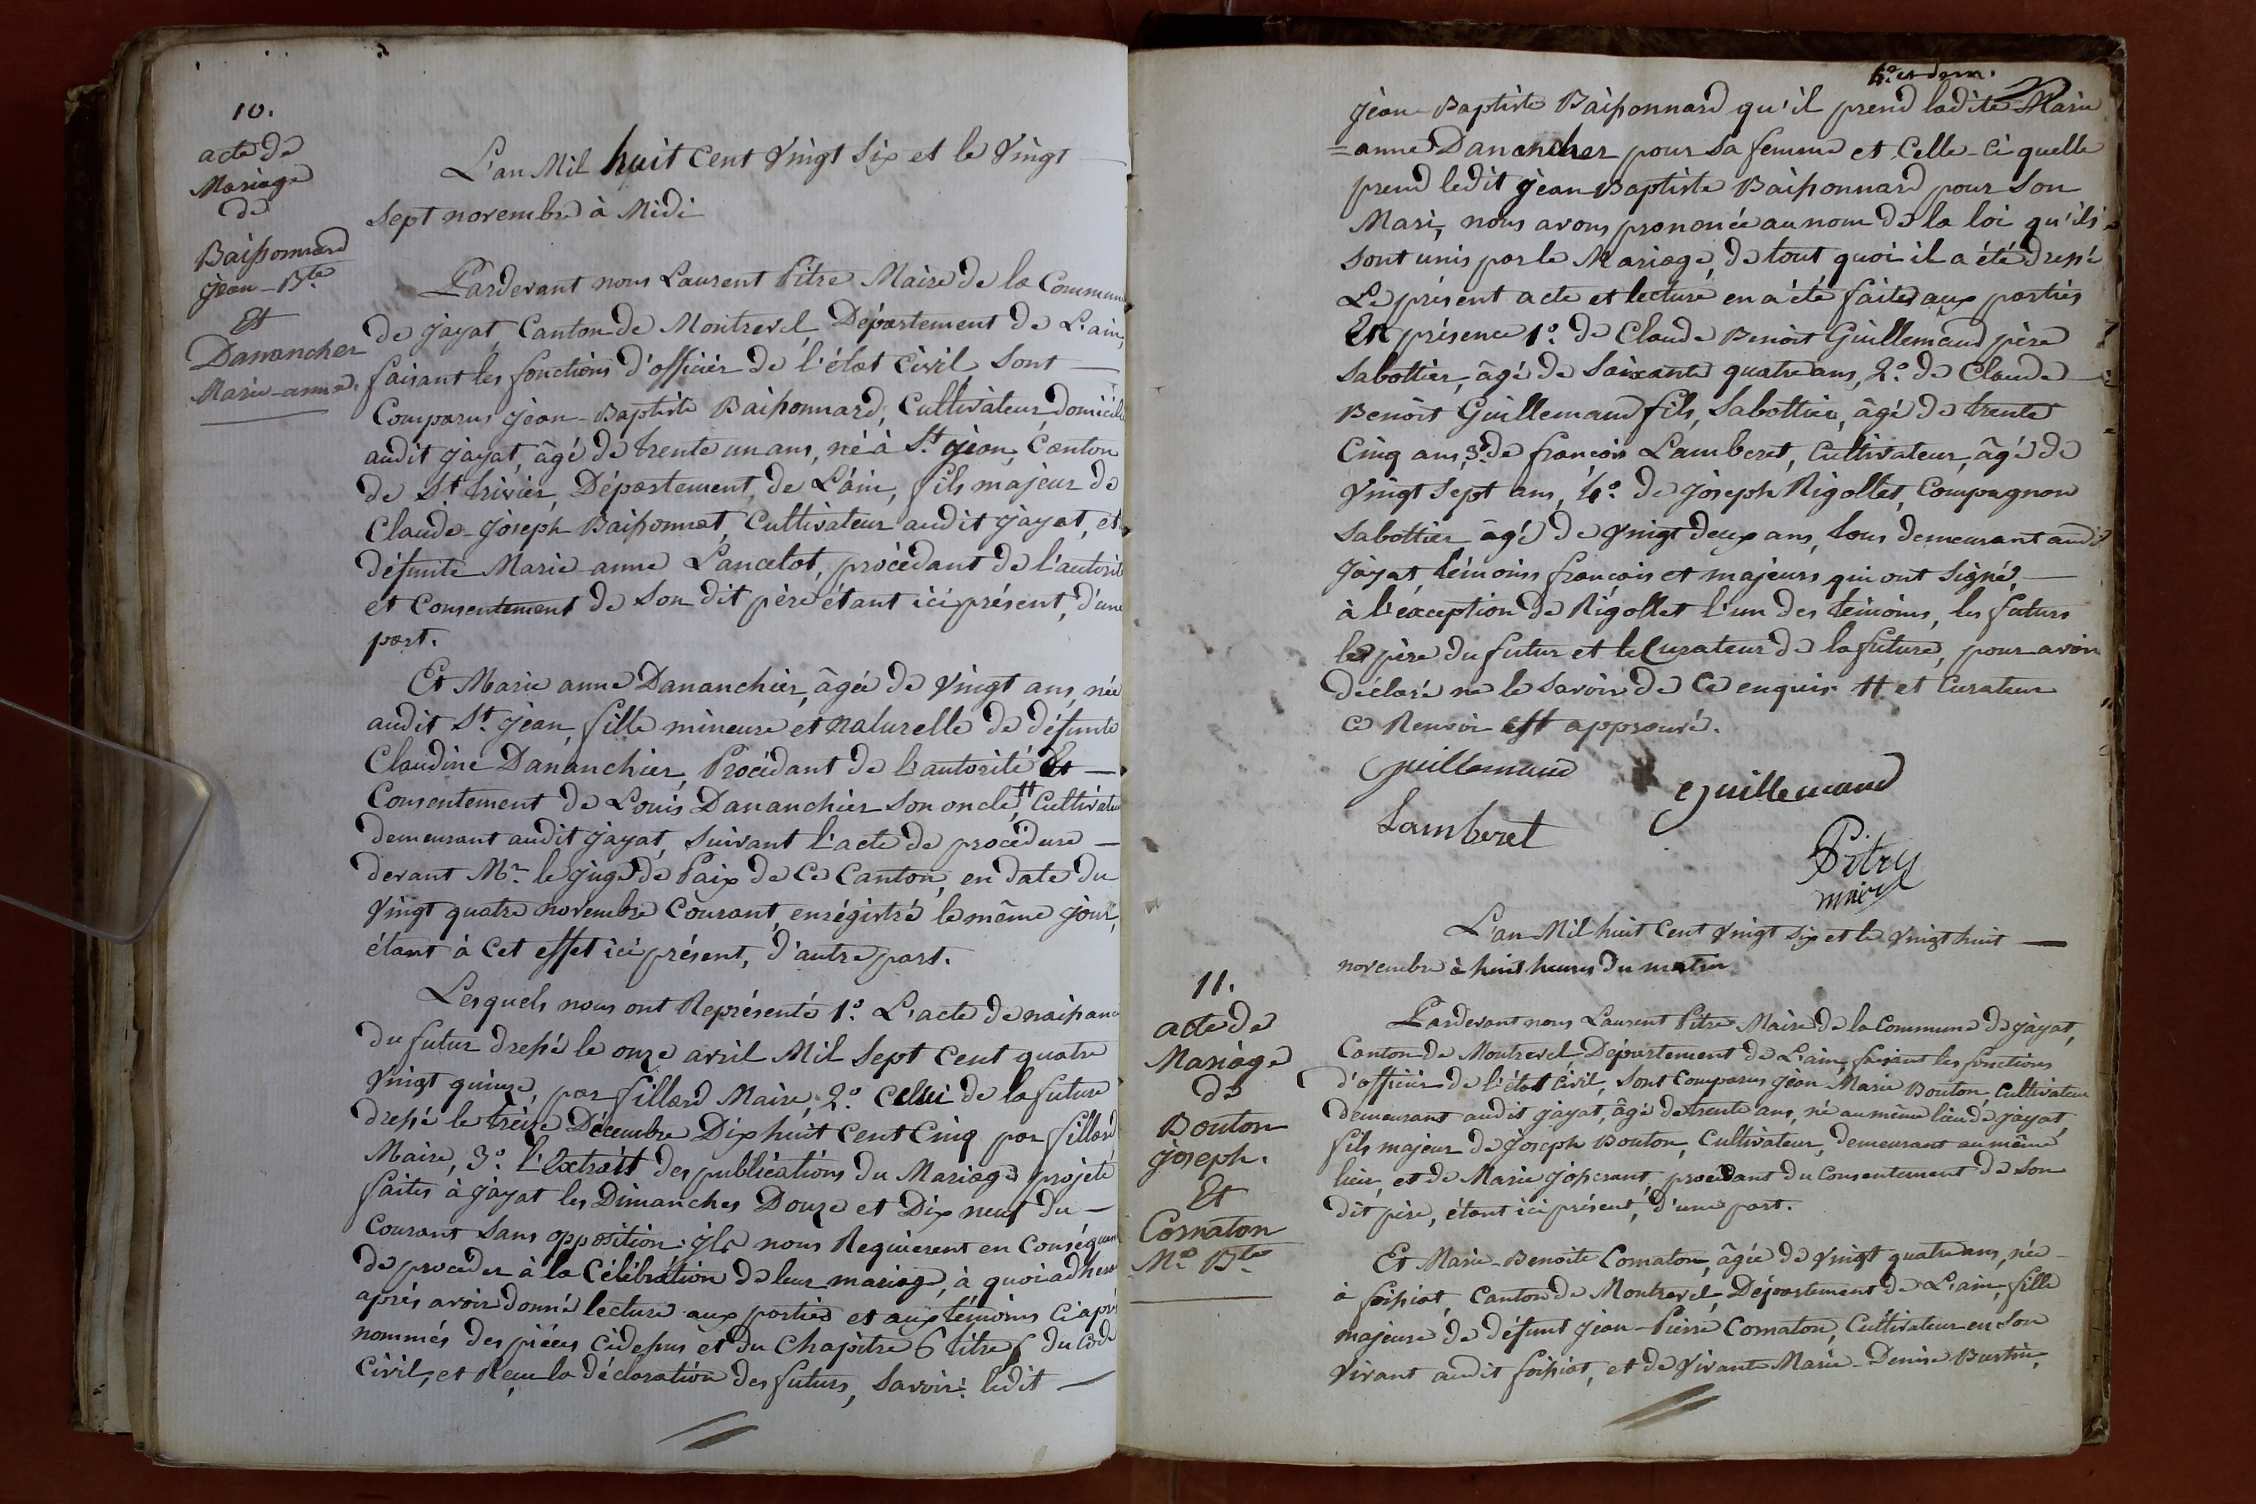 10.
acte de
Mariage
de
Baissonnard
jean-Bte
Et
Dananchier
Marie-anne.
L'an Mil huit Cent Vingt Six et le Vingt
Sept novembre à Midi
Pardevant nous Laurent Pitre Maire de la Commune
de jayat, Canton de Montrevel, Département de L'ain,
faisant les fonctions d'officier de l'état Civil Sont
Comparus jean-Baptiste Baissonnard, Cultivateur, domicilié
audit jayat, âgé de trente un ans, né à St. jean, Canton
de St trivier, Département de L'ain, fils majeur de
Claude-joseph Baissonnat, Cultivateur audit jayat, et
défunte Marie-anne Lancelot, procédant de l'autorité
et Consentement de Son dit père étant ici présent, d'une
part.
Et Marie anne Dananchier, âgée de Vingt ans, née
audit St. jean, fille mineure et naturelle de défunte
Claudine Dananchier, Procédant de l'autorité Et
Consentement de Louis Dananchier Son oncle, # Cultivateur
demeurant audit jayat, Suivant l'acte de procédure
devant Mr. le juge de Paix de Ce Canton, en date du
Vingt quatre novembre Courant, enrégistré le même jour,
étant à Cet effet ici présent, d'autre part.
Lesquels nous ont Représenté 1º. L'acte de naissance
du futur dressé le onze avril Mil Sept Cent quatre
Vingt quinze, par fillard Maire, 2º. Celui de la future
dressé le treize Décembre Dix huit Cent Cinq par fillard
Maire, 3º. l'Extrait des publications du Mariage projeté
faites à jayat les Dimanches Douze et Dix neuf du
Courant Sans opposition; ils nous Requierent en Conséquence
de procéder à la Célébration de leur mariage, à quoi adhérant
après avoir donné lecture aux parties et aux témoins Ci après
nommés des pièces Cidessus et du Chapitre 6 titre 5 du Code
Civil, et Reçu la déclaration des futurs, Savoir: ledit
5e. et dern.
jean-Baptiste Baissonnard qu'il prend ladite Marie
=anne Dananchier pour Sa femme et Celle-Ci quelle
prend ledit jean Baptiste Baissonnard pour Son
Mari, nous avons prononcé au nom de la loi qu'ils
Sont unis par le Mariage, de tout quoi il a été dressé
Le présent acte et lecture en a été faite aux parties
En présence 1º. de Claude Benoit Guillemaud père
Sabottier, âgé de Soixante quatre ans, 2º. de Claude
Benoit Guillemaud fils, Sabottier, âgé de trente
Cinq ans, 3º. de françois Lamberet, Cultivateur, âgé de
Vingt Sept ans, 4º. de joseph Rigollet, Compagnon
Sabottier âgé de Vingt deux ans, tous demeurant audit
jayat témoins françois et majeurs qui ont Signé,
à l'éxception de Rigollet l'un des témoins, les futurs
le père du futur et le Curateur de la future, pour avoir
déclaré ne le Savoir de Ce enquis. # et Curateur
Ce Renvoi est approuvé.
Guillemaud
Guillemaud
Lamberet
Pitre
maire
11.
acte de
Mariage
de
Bouton
joseph.
Et
Cornaton
Me. Bte
L'an Mil huit Cent Vingt Six et le Vingt huit
novembre à huit heures du matin
Pardevant nous Laurent Pitre Maire de la Commune de jayat,
Canton de Montrevel, Département de L'ain, faisant les fonctions
d'officier de l'état Civil, Sont Comparus jean Marie Bouton, Cultivateur
demeurant audit jayat, âgé de trente ans, né au même lieu de jayat,
fils majeur de joseph Bouton, Cultivateur, demeurant au même
lieu, et de Marie josserant, procédant du Consentement de Son
dit père, étant ici présent, d'une part.
Et Marie-Benoite Cornaton, âgée de Vingt quatre ans, née
à foissiat, Canton de Montrevel, Département de L'ain, fille
majeure de défunt jean-Pierre Cornaton, Cultivateur en Son
Vivant audit foissiat, et de Vivante Marie-Denise